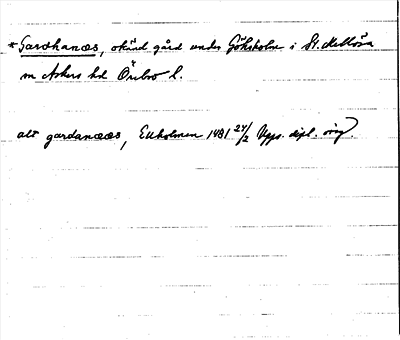 * Gardhanæs, okänd gård under Göksholm i St. Mellösa
sn Askers hd Örebro l.
all gardanææs, Ekholmen 1481 24/2 Upps. dipl. orig.